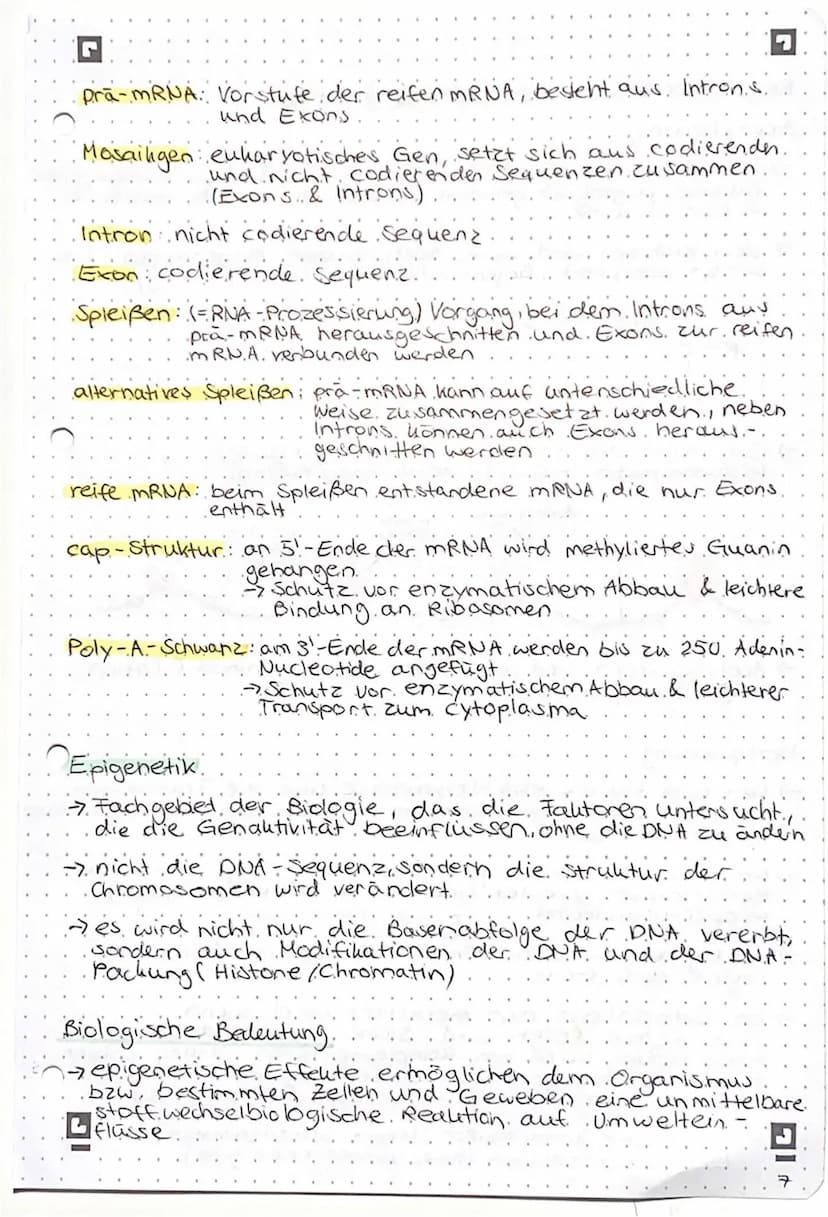 prä-mRNA: Vorstufe der reifen mRNA, besteht aus Introns
und Exons
Mosaikgen: eukaryotisches Gen, setzt sich aus codierenden
und nicht codierenden Sequenzen zusammen
(Exons & Introns)
Intron: nicht codierende Sequenz
Exon: codierende Sequenz
Spleißen: (=RNA-Prozessierung) Vorgang, bei dem Introns aus
prä-mRNA herausgeschnitten und Exons zur reifen
mRNA verbunden werden
alternatives Spleißen: prä-mRNA kann auf unterschiedliche
Weise zusammengesetzt werden, neben
Introns können auch Exons heraus-
geschnitten werden
reife mRNA: beim Spleißen entstandene mRNA, die nur Exons
enthält
cap-Struktur: an 5'-Ende der mRNA wird methyliertes Guanin
gehangen
→ Schutz vor enzymatischem Abbau & leichtere
Bindung an Ribosomen
Poly-A-Schwanz: am 3'-Ende der mRNA werden bis zu 250 Adenin-
Nucleotide angefügt
→ Schutz vor enzymatischem Abbau & leichterer
Transport zum Cytoplasma
Epigenetik
→ Fachgebiet der Biologie, das die Faktoren untersucht,
die die Genaktivität beeinflussen, ohne die DNA zu ändern
→ nicht die DNA-Sequenz, sondern die Struktur der
Chromosomen wird verändert
→ es wird nicht nur die Basenabfolge der DNA vererbt,
sondern auch Modifikationen der DNA und der DNA-
Packung (Histone/Chromatin)
Biologische Bedeutung
→ epigenetische Effekte ermöglichen dem Organismus
bzw. bestimmten Zellen und Geweben eine unmittelbare
stoffwechselbiologische Reaktion auf Umweltein-
flüsse
7